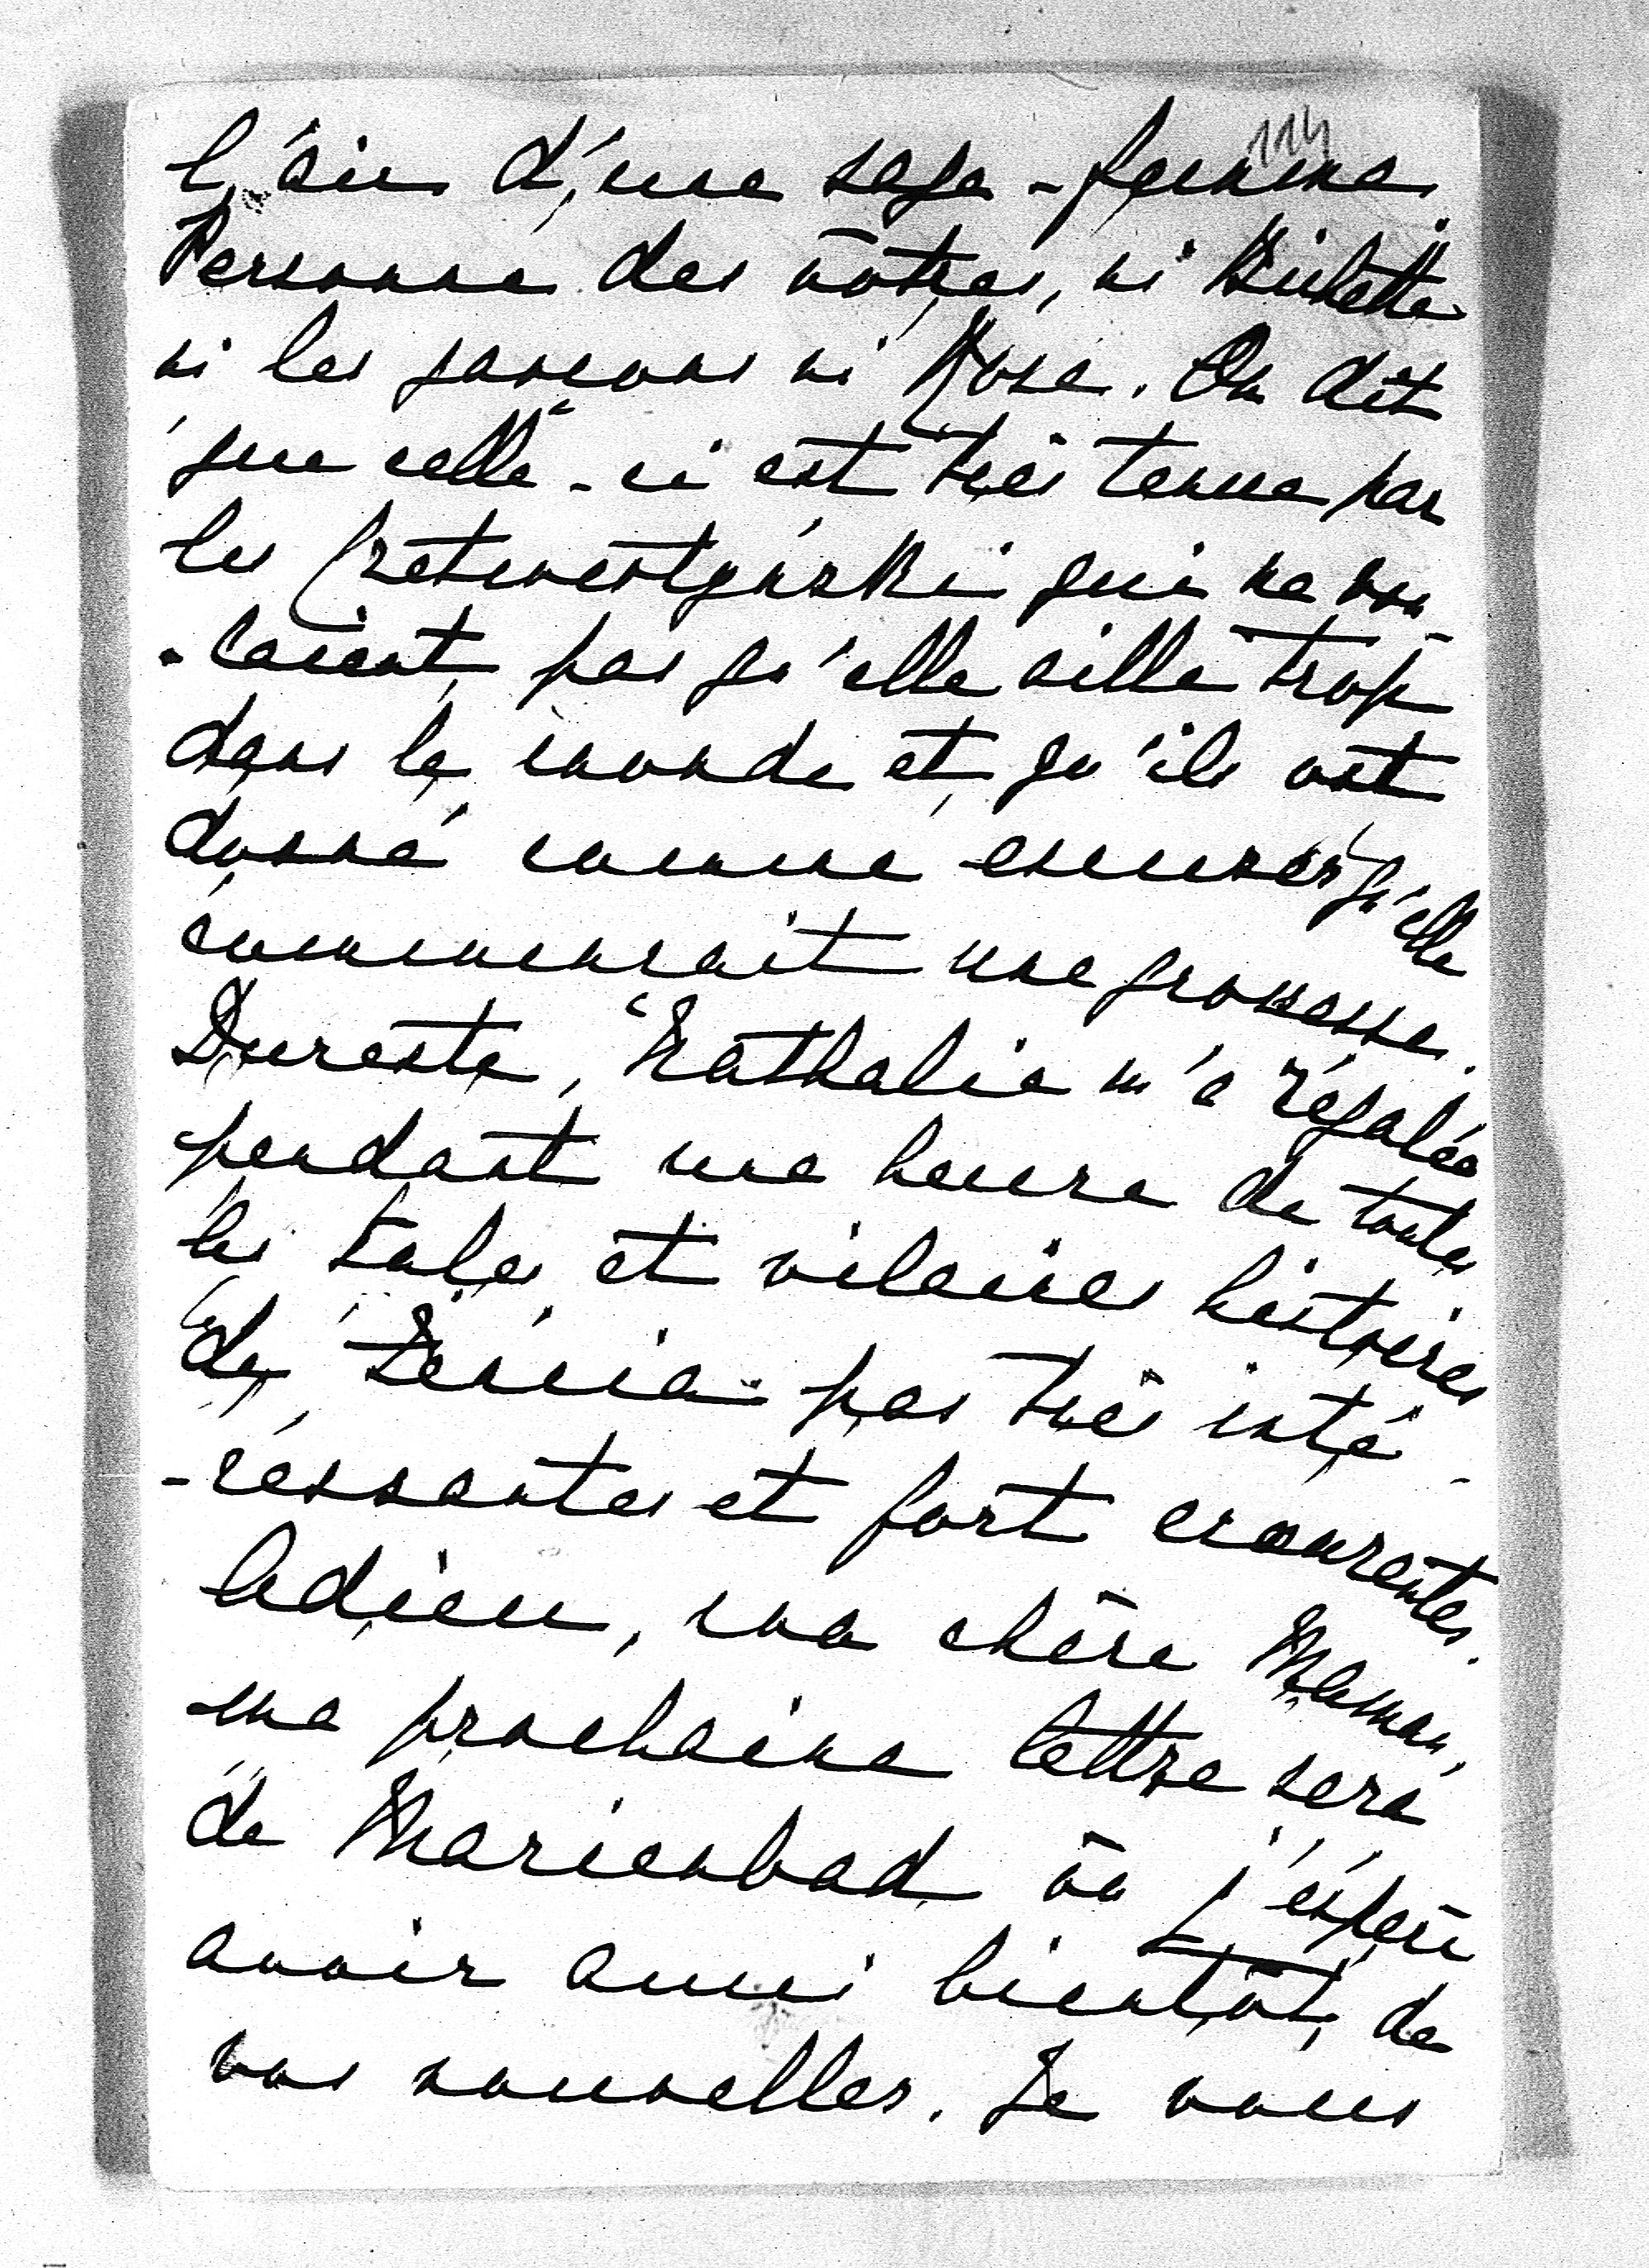 114
l'air d'une sage-femme.
Personne des nôtres, ni Bichette
ni les garçons ni Rose. On dit
que celle-ci est très tenue par
les qui ne vou-
-laient pas qu'elle aille trop
dans le monde et qu'ils ont
donné comme excuse qu'elle
commençait une grossesse.
Dureste, Nathalie m'a régalée
pendant une heure de toutes
les sales et vilaines histoires
de pas très inté-
-ressantes et fort écœurantes.
Adieu, ma chère Maman,
ma prochaine lettre sera
de Marienbad où j'espère
avoir aussi bientôt de
vos nouvelles. Je vous